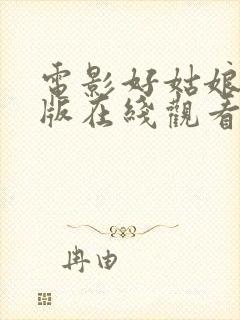 電影好姑娘
版在綫觀看
冉由